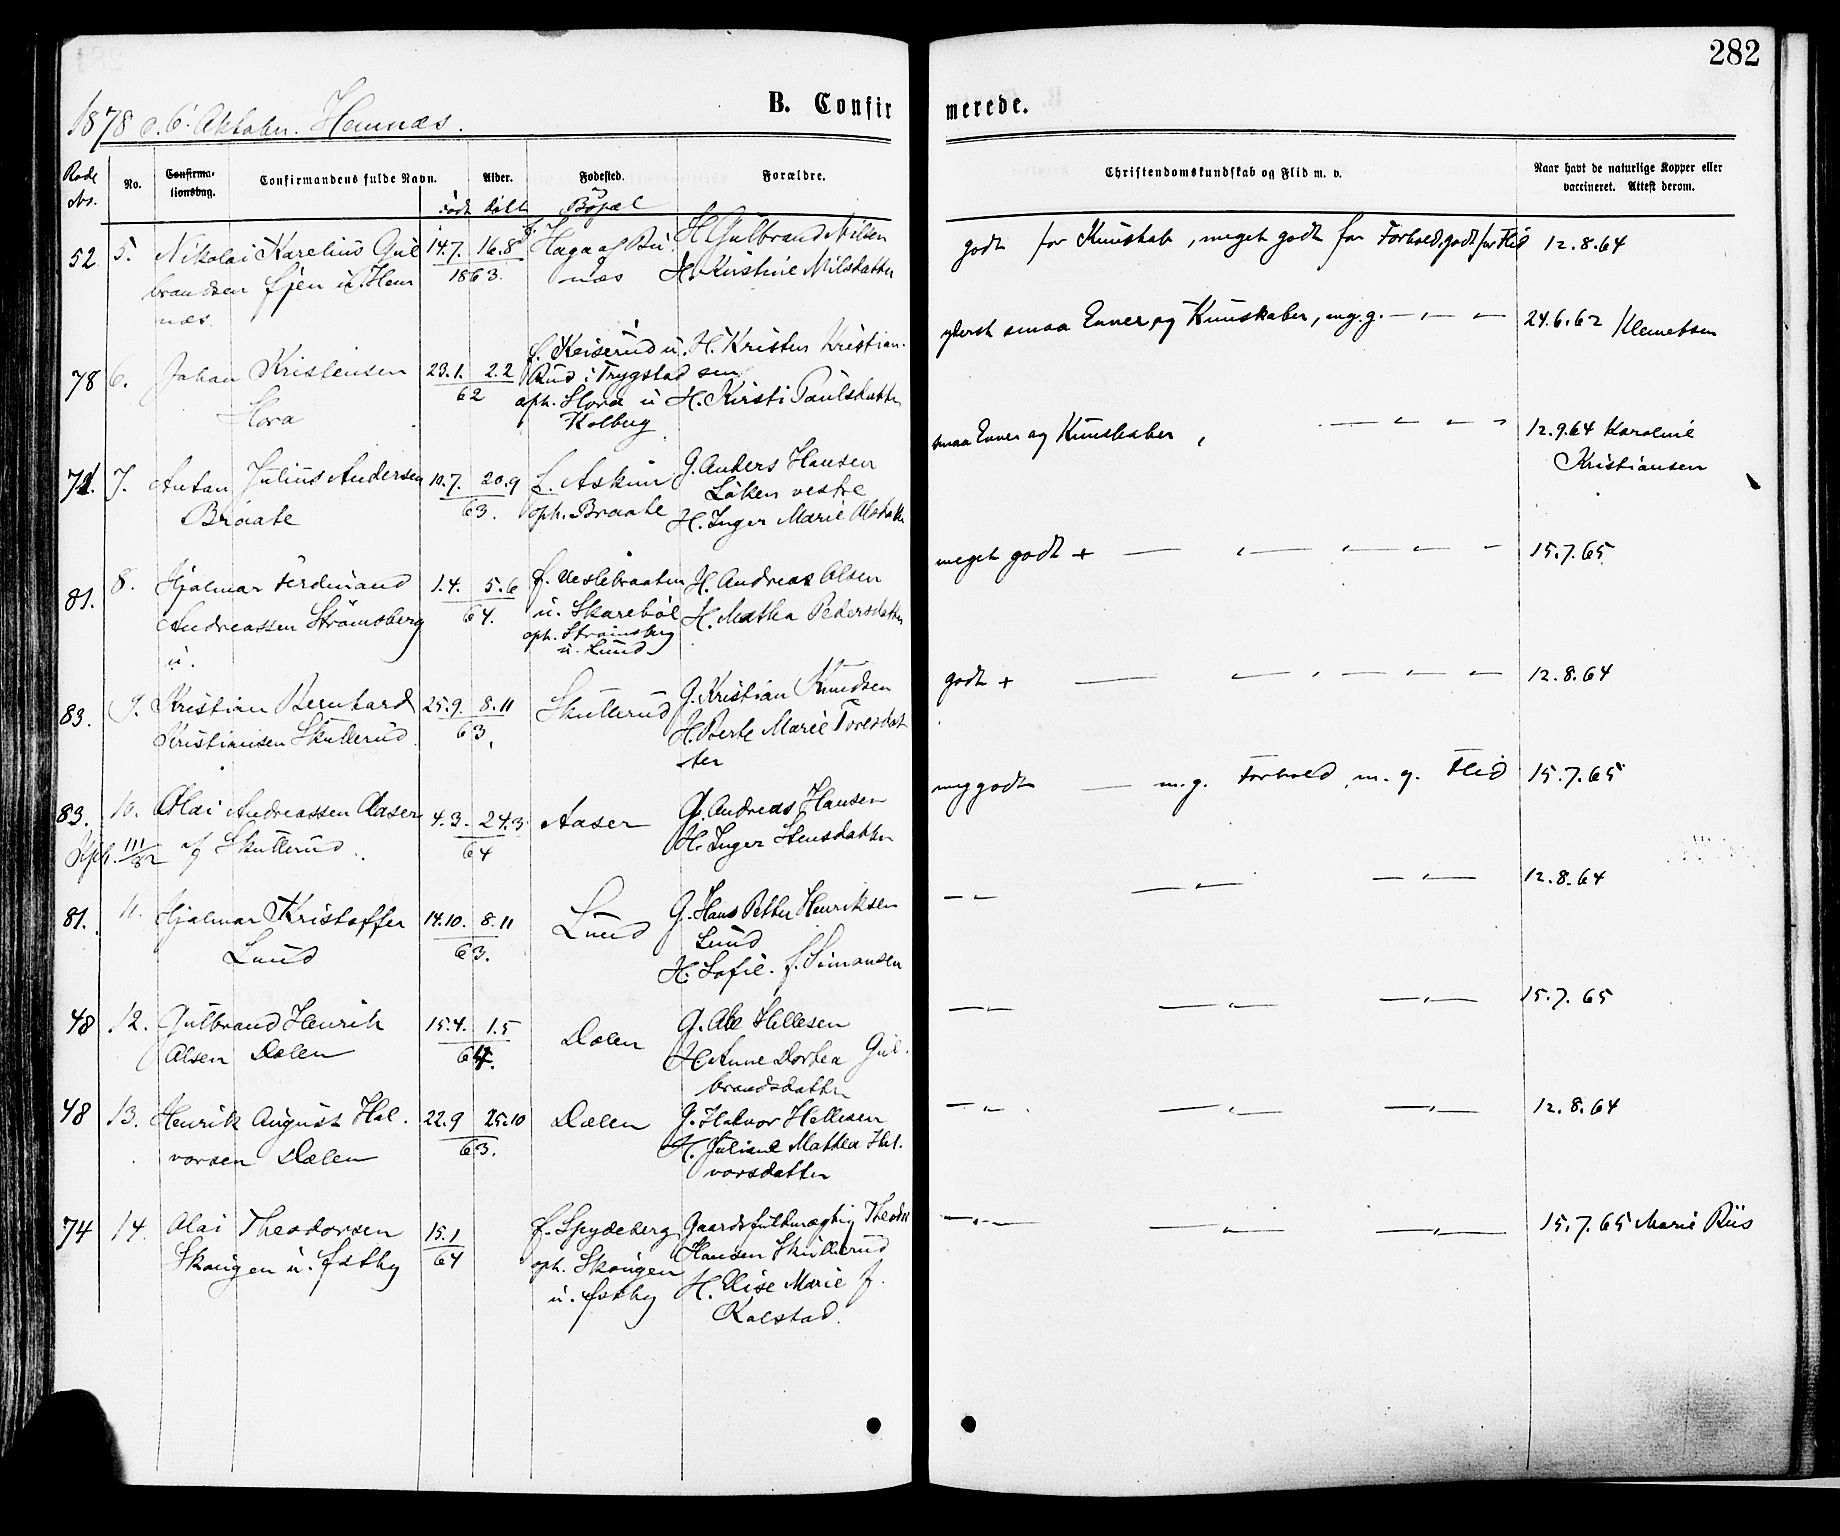 282
1878 d. 6 Oktober. Hemnæs.
B. Confirmerede.
Rode No.
No.
Confirmationsdag.
Confirmandens fulde Navn.
Alder.
Født Døbt
Fødested.
Bopæl
Forældre.
Christendomskundskab og Flid m. v.
Naar havt de naturlige Kopper eller
vaccineret. Attest derom.
52 5. Nikolai Karelius Gul
brandsen Ejen u. Hem
næs.
14.7. 16.8
1863.
Haga af Bu
næs
H. Gulbrand Nilsen
H. Kirstine Nilsdatter
godt for Kundskab, meget godt for Forhold, godt for Flid
12.8.64
78 6. Johan Kristensen
Hora
23.1. 2.2
62
f. Keiserud u.
Rud i Trygstad
oph. Hora u
Kolberg
H. Kristen Kristian-
sen
H. Kirsti Paulsdatter
yderst smaa Evner og Kundskaber, mg. g. — „ — —
24.6.62 Klemetsen
71. 7. Anton Julius Andersen
Braate
10.7. 20.9
63.
f. Askim
oph. Braate
G. Anders Hansen
Løken vestre
H. Inger Marie Olsdatter
smaa Evner og Kundskaber,
12.9.64 Karoline
Kristiansen
81. 8. Hjalmar Ferdinand
Andreassen Strømsberg
u.
1.4. 5.6
64.
f. Veslebraaten
u. Skarebøl
oph. Strømsberg
u. Lund
H. Andreas Olsen
H. Mathea Pedersdatter
meget godt + — „ — „ — „ — „ —
15.7.65
83. 9. Kristian Bernhard
Kristiansen Skullerud
25.9. 8.11
63.
Skullerud
G. Kristian Knudsen
H. Berte Marie Toresdat
ter
godt + — „ — „ — „ — „ —
12.8.64
83. 10. Olai Andreassen Aaser
af Skullerud.
4.3. 24.3
64
Aaser
G. Andreas Hansen
H. Inger Hansdatter
meg godt — m. g. Forhold, m. g. Flid
15.7.65
81. 11. Hjalmar Kristoffer
Lund
14.10. 8.11
63.
Lund
G. Hans Petter Henriksen
Lund
H. Sofie f. Simonsen
— „ — — „ — — „ —
12.8.64
48 12. Gulbrand Henrik
Olsen Dælen
15.4. 1.5
64.
Dælen
G. Ole Hellesen
H. Anne Dortea Gul-
brandsdatter
— „ — — „ — — „ —
15.7.65
48 13. Henrik August Hal-
vorsen Dælen
22.9 25.10
63.
Dælen
G. Halvor Hellesen
H. Juliane Mathea Hal-
vorsdatter
— „ — — „ — — „ —
12.8.64
74 14. Olai Theodorsen
Skougen u. Østby
15.1
64
f. Spydeberg
oph. Skougen
u. Østby
Gaardsfuldmægtig Theodor
Hansen Skullerud
H. Elise Marie f.
Kolstad.
— „ — — „ — — „ —
15.7.65 Marie Riis